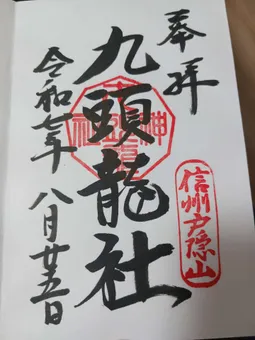 奉拝
信州戸隠山
九頭龍社
令和七年
八月廿五日